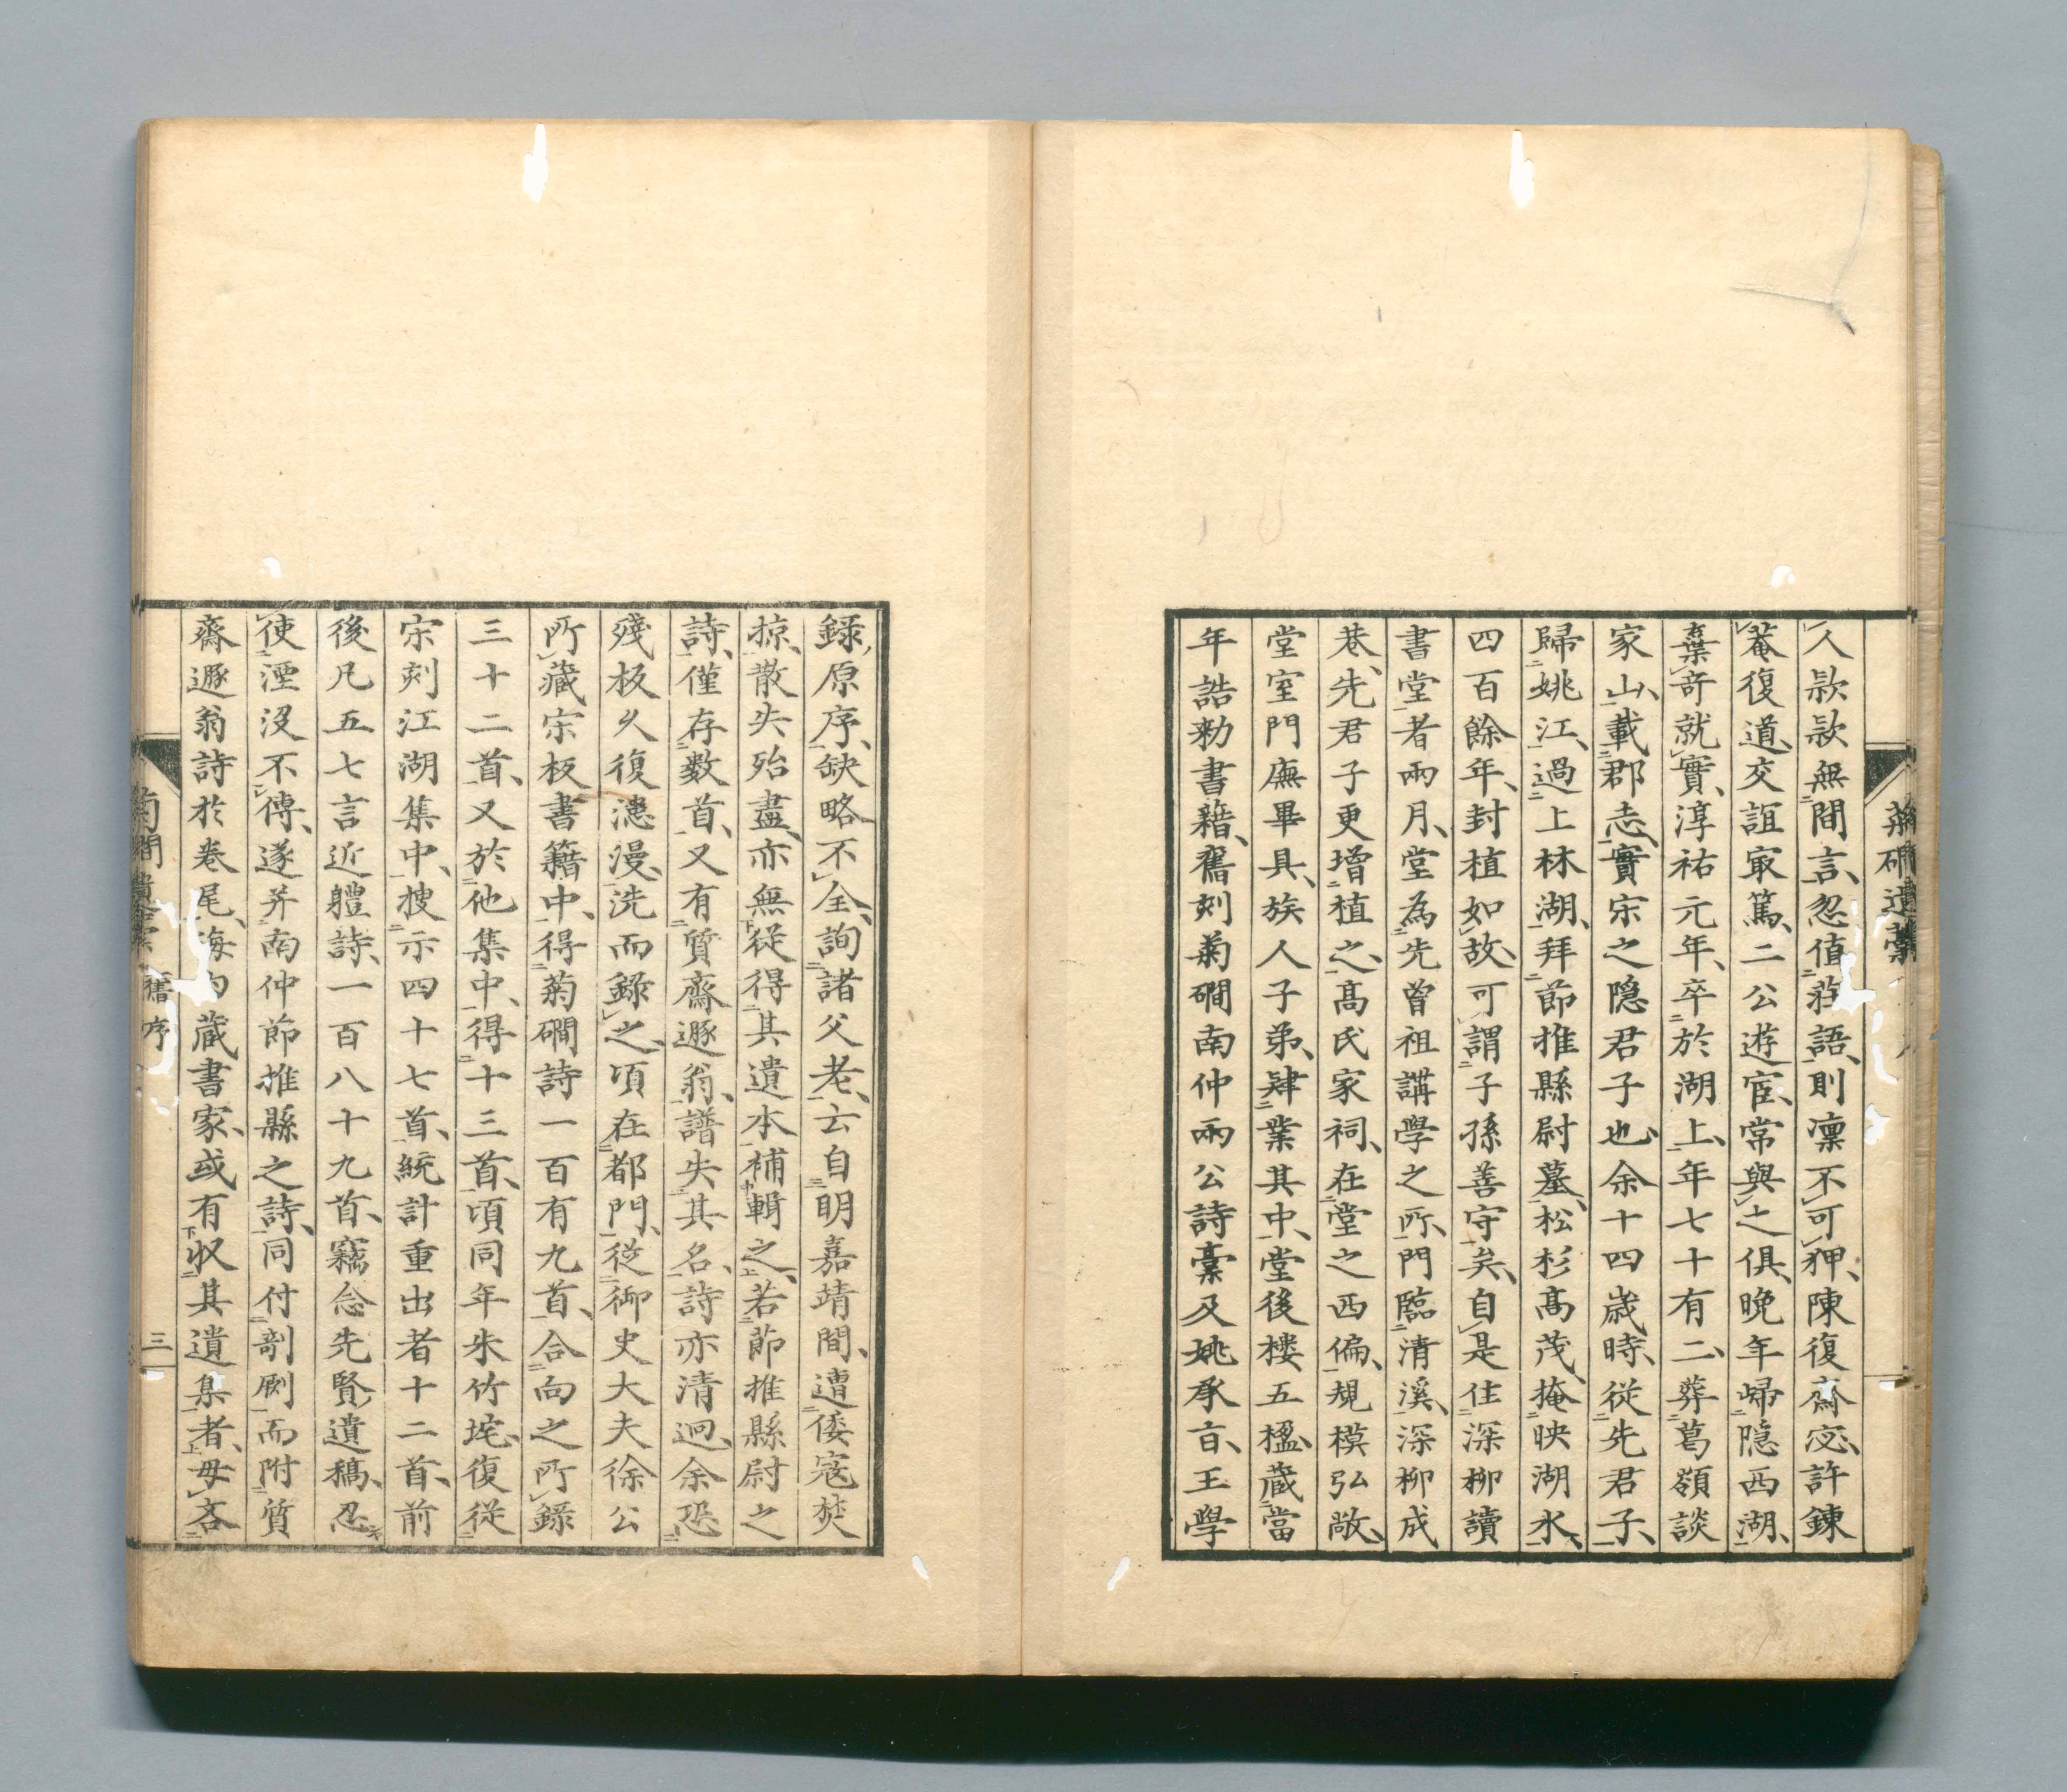 菊磵遺藁
人款款無間言、忽值莊語、則凜不可狎、陳復齋宓、許鍊
菴復道、交誼㝡篤、二公遊宦、常與之俱、晚年歸隱西湖、
棄竒就實、淳祐元年、卒於湖上、年七十有二、葬葛嶺談
家山、載郡志、實宋之隠君子也、余十四歲時、從先君子、
歸姚江、過上林湖、拜節推縣尉墓、松杉高茂、掩映湖水、
四百餘年、封植如故、可謂子孫善守矣、自是住深柳讀
書堂者兩月、堂為先曾祖講學之所、門臨清溪、深柳成
巷、先君子更增植之、高氏家祠、在堂之西偏、規模弘敞、
堂室門廡畢具、族人子弟、肄業其中、堂後樓五楹、藏當
年誥勑書籍、舊刻菊磵南仲兩公詩藁及姚承言、王學
錄、原序、缺略不全、詢諸父老、云自明嘉靖間、遭倭寇焚
掠、散失殆盡、亦無從得其遺本補輯之、若節推縣尉之
詩、僅存数首、又有質齋遯翁、譜失其名、詩亦清迥、余恐
殘板久復漶漫、洗而錄之、頃在都門、從御史大夫徐公
所藏宋板書籍中、得菊磵詩一百有九首、合向之所錄
三十二首、又於他集中、得十三首、頃同年朱竹垞、復從
宋刻江湖集中、搜示四十七首、統計重出者十二首、前
後凡五七言近軆詩、一百八十九首、竊念先賢遺稿、忍
使湮沒不傳、遂并南仲節推縣之詩、同付剞劂而附質
齋遯翁詩於卷尾、海內藏書家、或有収其遺集者、毋吝
菊磵遺藁 舊序 三